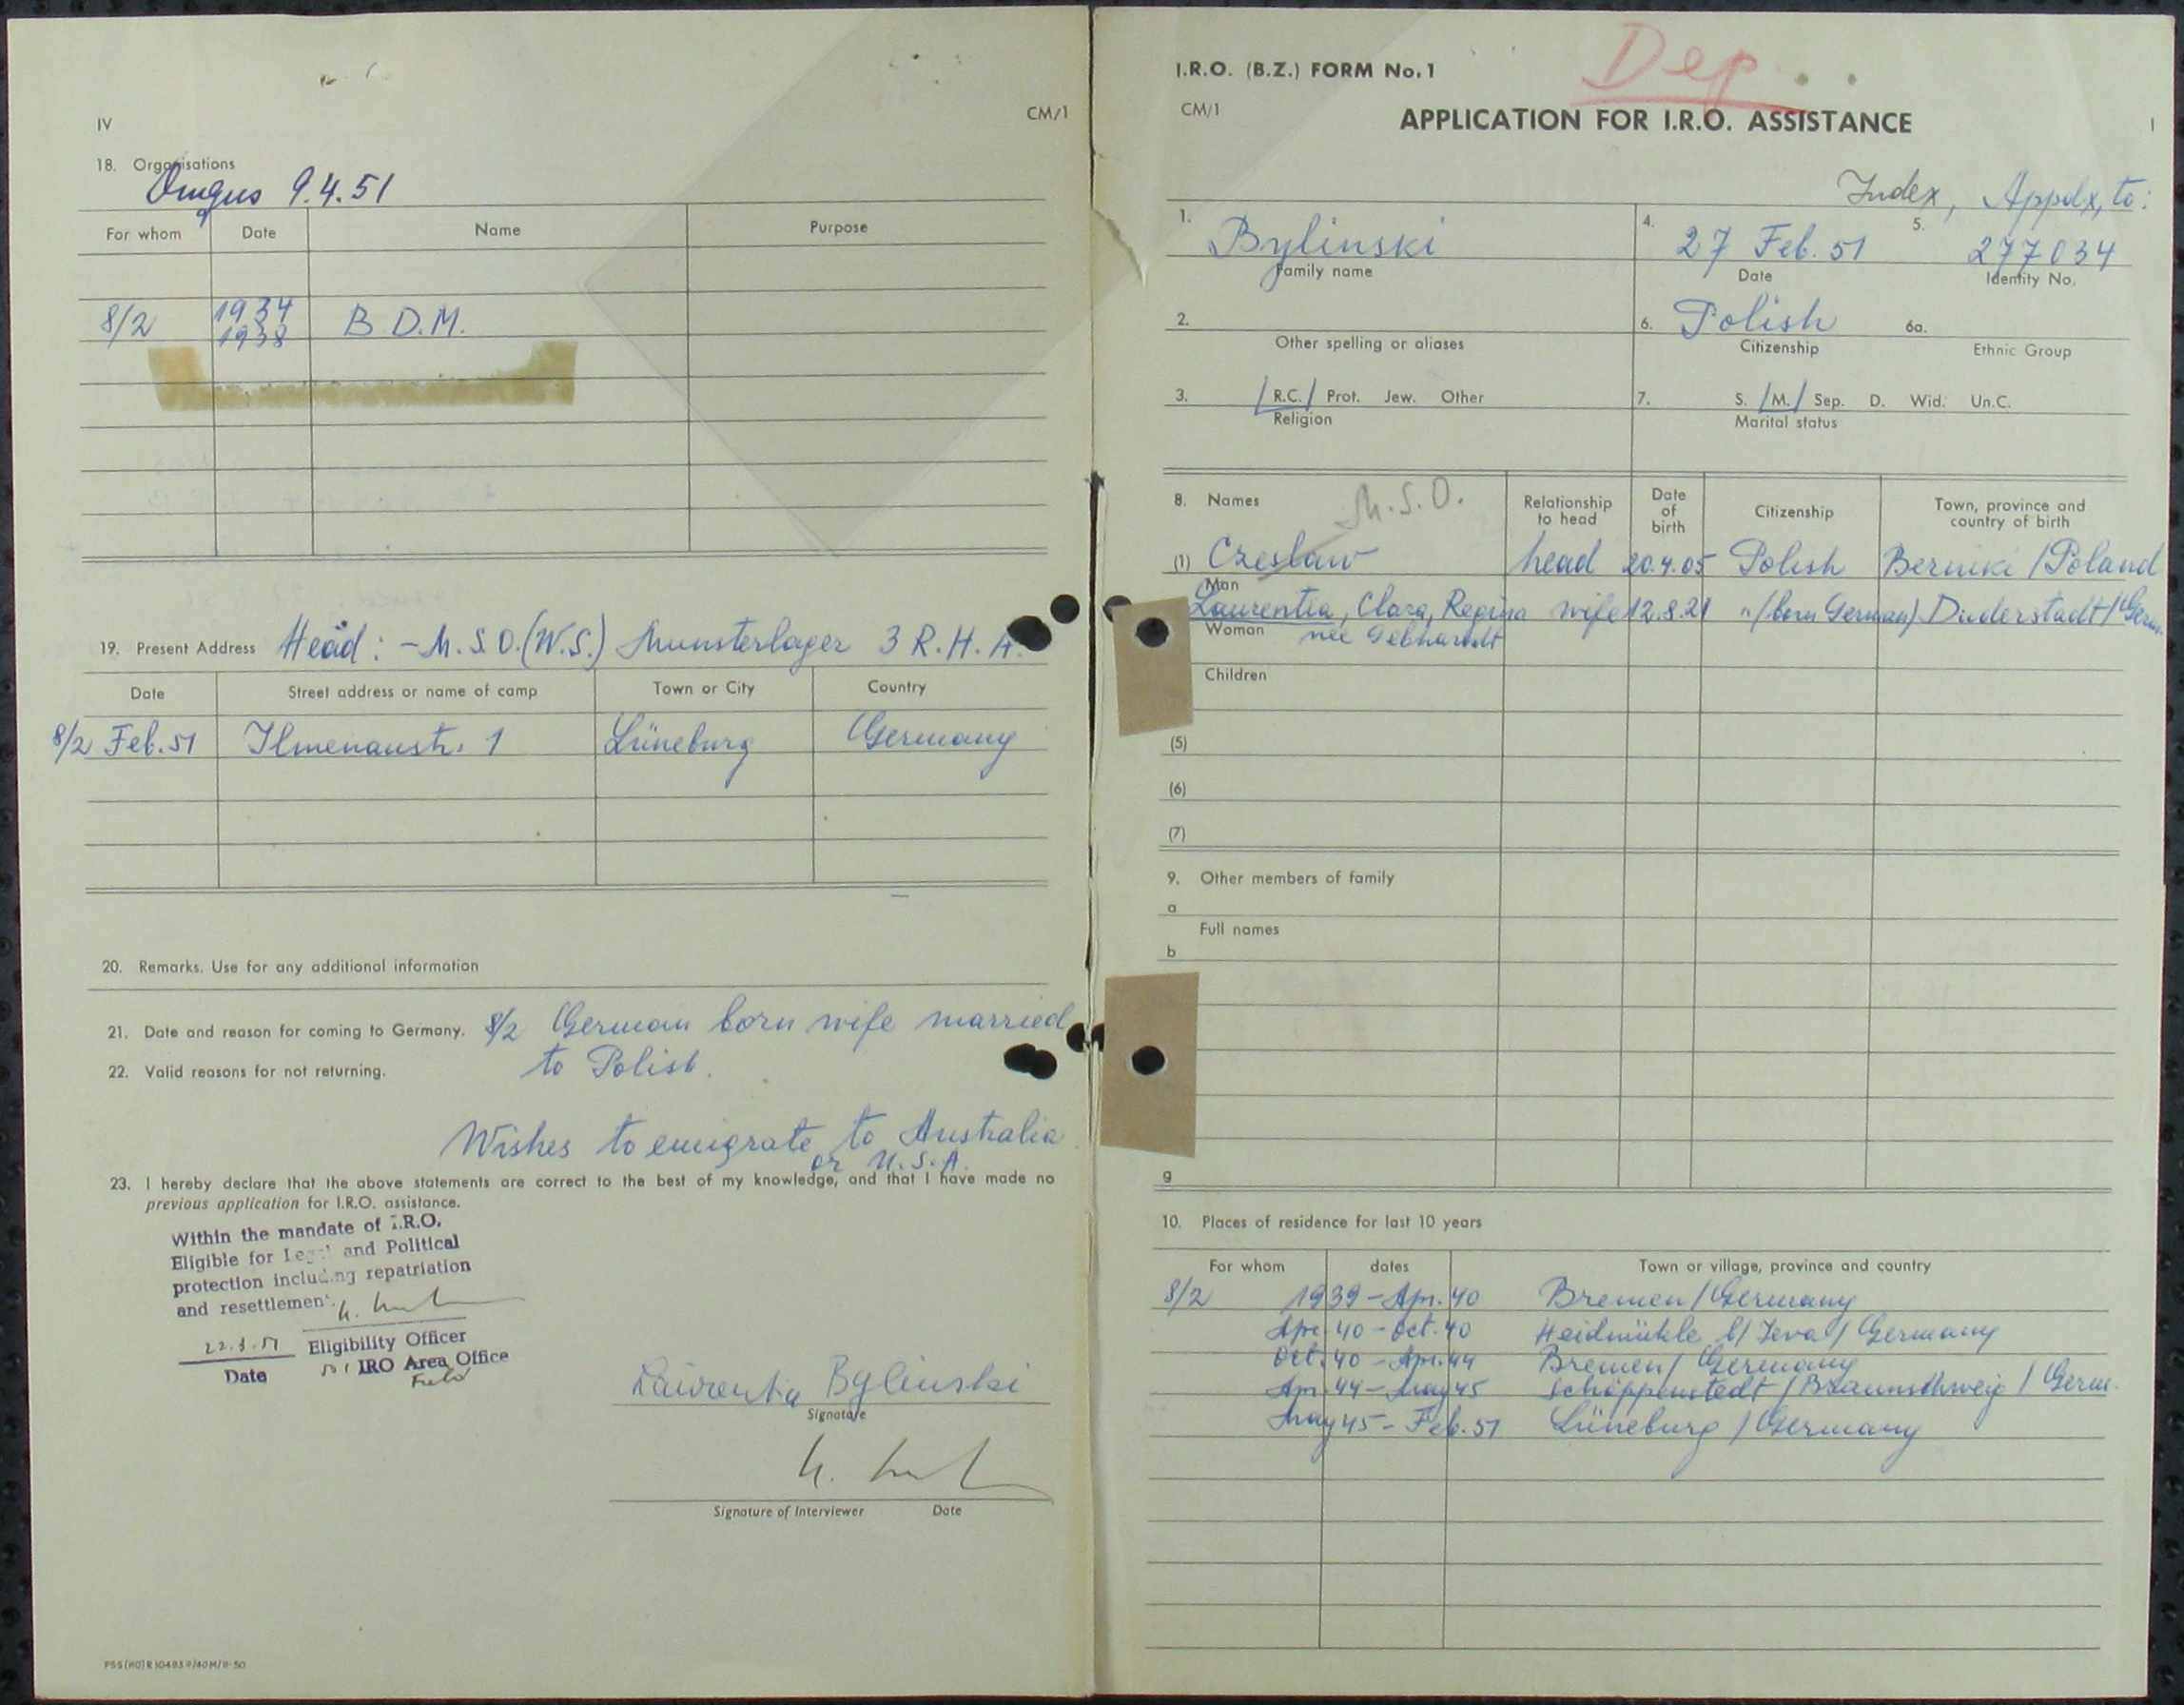 IV
CM/1
18. Organisations
9.4.51
For whom Date Name Purpose
8/2 1934 1938 B.D.M.
19. Present Address Head: - M.S.O. (W.S.) Munsterlager 3 R.H.
Date Street address or name of camp Town or City Country
8/2 Feb. 51 Ilmenaustr. 1 Lüneburg Germany
20. Remarks. Use for any additional information
21. Date and reason for coming to Germany. 8/2 German born wife married
22. Valid reasons for not returning. to Polish.
Wishes to emigrate to Australia
or U.S.A.
23. I hereby declare that the above statements are correct to the best of my knowledge, and that I have made no
previous application for I.R.O. assistance.
Within the mandate of I.R.O.
Eligible for Legal and Political
protection including repatriation
and resettlement.
Eligibility Officer
Date
IRO Area Office
Field
Laurentia Bylinski
Signature
Signature of Interviewer Date
Dep.
I.R.O. (B.Z.) FORM No. 1
CM/1
APPLICATION FOR I.R.O. ASSISTANCE
1
Index, Appdx, to:
1. Bylinski 4. 27 Feb. 51 5. 277034
Family name Date Identity No.
2. 6. Polish 6a.
Other spelling or aliases Citizenship Ethnic Group
3. /R.C./ Prot. Jew. Other 7. S. /M./ Sep. D. Wid. Un.C.
Religion Marital status
8. Names M.S.O. Relationship to head Date of birth Citizenship Town, province and country of birth
(1) Czeslaw head 20.4.05 Polish Berniki / Poland
Man
Laurentia, Clara, Regina wife 12.8.21 " (born German) Duderstadt / Germ.
Woman née Gebhardt
Children
(5)
(6)
(7)
9. Other members of family
a
Full names
b
g
10. Places of residence for last 10 years
For whom dates Town or village, province and country
8/2 1939 - Apr. 40 Bremen / Germany
Apr. 40 - Oct. 40 Heidmühle b/ Jever / Germany
Oct. 40 - Apr. 44 Bremen / Germany
Apr. 44 - May 45 Schöppenstedt / Braunschweig / Germ.
May 45 - Feb. 51 Lüneburg / Germany